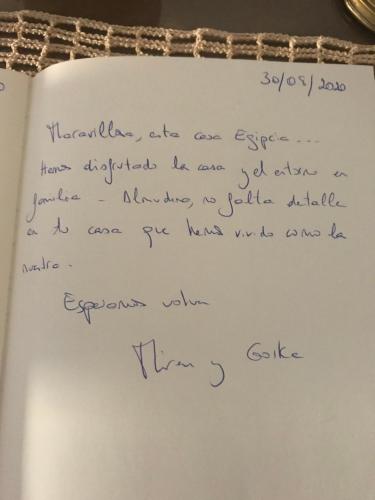 30/08/2020
Maravillosa, esta casa Egipcia...
Hemos disfrutado la casa y el entorno en
familia - Almudena, no falta detalle
en tu casa que hemos vivido como la
nuestra.
Esperamos volver
Miren y Gorka